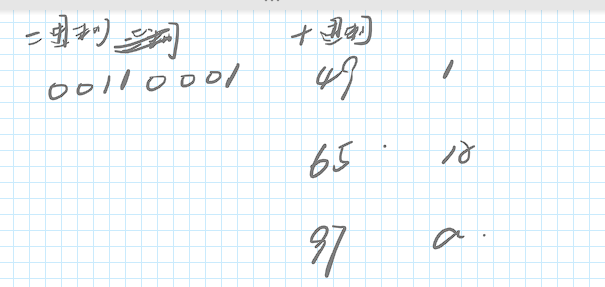 二进制 十进制
00110001 49 1
65
97 a